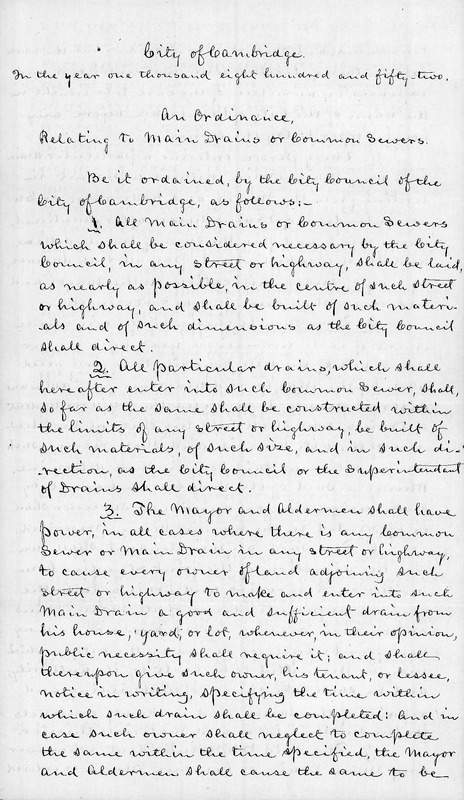 City of Cambridge.
In the year one thousand eight hundred and fifty-two.
An Ordinance,
Relating to Main Drains or Common Sewers.
Be it ordained, by the City Council of the
City of Cambridge, as follows:-
1. All Main Drains or Common Sewers
which shall be considered necessary by the City
Council, in any street or highway, shall be laid,
as nearly as possible, in the centre of such street
or highway, and shall be built of such materi-
-als and of such dimensions as the City Council
shall direct.
2. All particular drains, which shall
hereafter enter into such Common Sewer, shall,
so far as the same shall be constructed within
the limits of any street or highway, be built of
such materials, of such size, and in such di-
-rection, as the City Council or the Superintendant
of Drains shall direct.
3. The Mayor and Aldermen shall have
power, in all cases where there is any Common
Sewer or Main Drain in any street or highway,
to cause every owner of land adjoining such
street or highway to make and enter into such
Main Drain a good and sufficient drain from
his house, yard, or lot, whenever, in their opinion,
public necessity shall require it; and shall
thereupon give such owner, his tenant, or lessee,
notice in writing, specifying the time within
which such drain shall be completed: And in
case such owner shall neglect to complete
the same within the time specified, the Mayor
and Aldermen shall cause the same to be